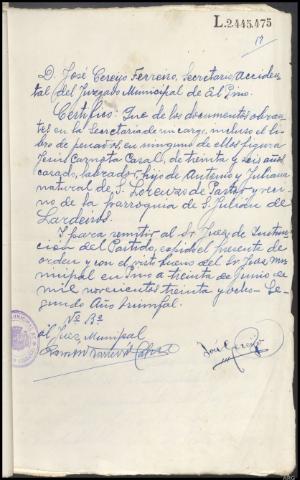 L.2445475
D. José Cereijo Ferreiro, Secretario Acciden-
tal del Juzgado Municipal de El Pino.
Certifico: Que de los documentos obran-
tes en la Secretaria de mi cargo, incluso el li-
bro de penados, en ninguno de ellos figura
Jesús Carnota Casal, de treinta y seis años
casado, labrador, hijo de Antonio y Juliana
natural de S. Lorenzo de Pastor y veci-
no de la parroquia de S. Julián de
Lardeiros.
Y para remitir al Sr. Juez de Instruc-
ción del Partido, expido el presente de
orden y con el visto bueno del Sr. Juez mu-
nicipal en Pino a treinta de Junio de
mil novecientos treinta y ocho. Se-
gundo Año Triunfal.
Vº Bº
el Juez Municipal
José Cereijo